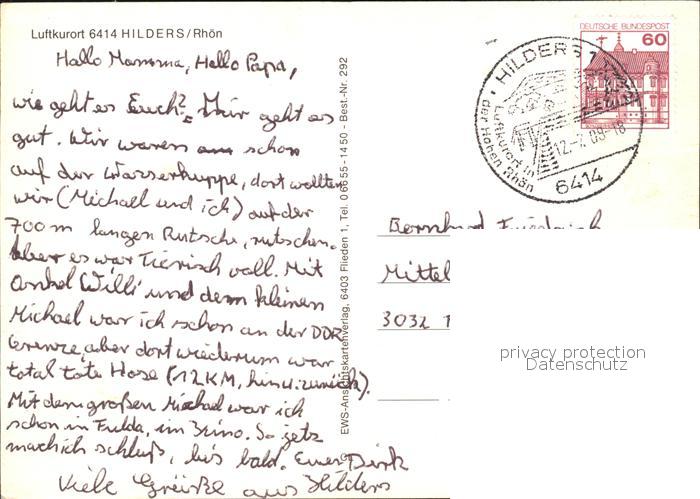 Luftkurort 6414 HILDERS/Rhön
Hallo Mamma, Hallo Papa,
wie geht es Euch? Mir geht es
gut. Wir waren schon
auf der Wasserkuppe, dort wollten
wir (Michael und ich) auf der
700m langen Rutsche, rutschen.
Aber es war Tierisch voll. Mit
Onkel Willi und dem kleinen
Michael war ich schon an der DDR
Grenze, aber dort wiederum war
total tote Hose (12 KM, hin u. zurück).
Mit dem großen Michael war ich
schon in Fulda, im Kino. So jetz
mach ich schluß, bis bald. Euer Dirk
Viele Grüße aus Hilders
EWS-Ansichtskartenverlag, 6403 Flieden 1, Tel. 06655-1450 - Best.-Nr. 292
DEUTSCHE BUNDESPOST
60
HILDERS 1
Luftkurort in
der Hohen Rhön
6414
Bernhard
Mittel
3032
privacy protection
Datenschutz